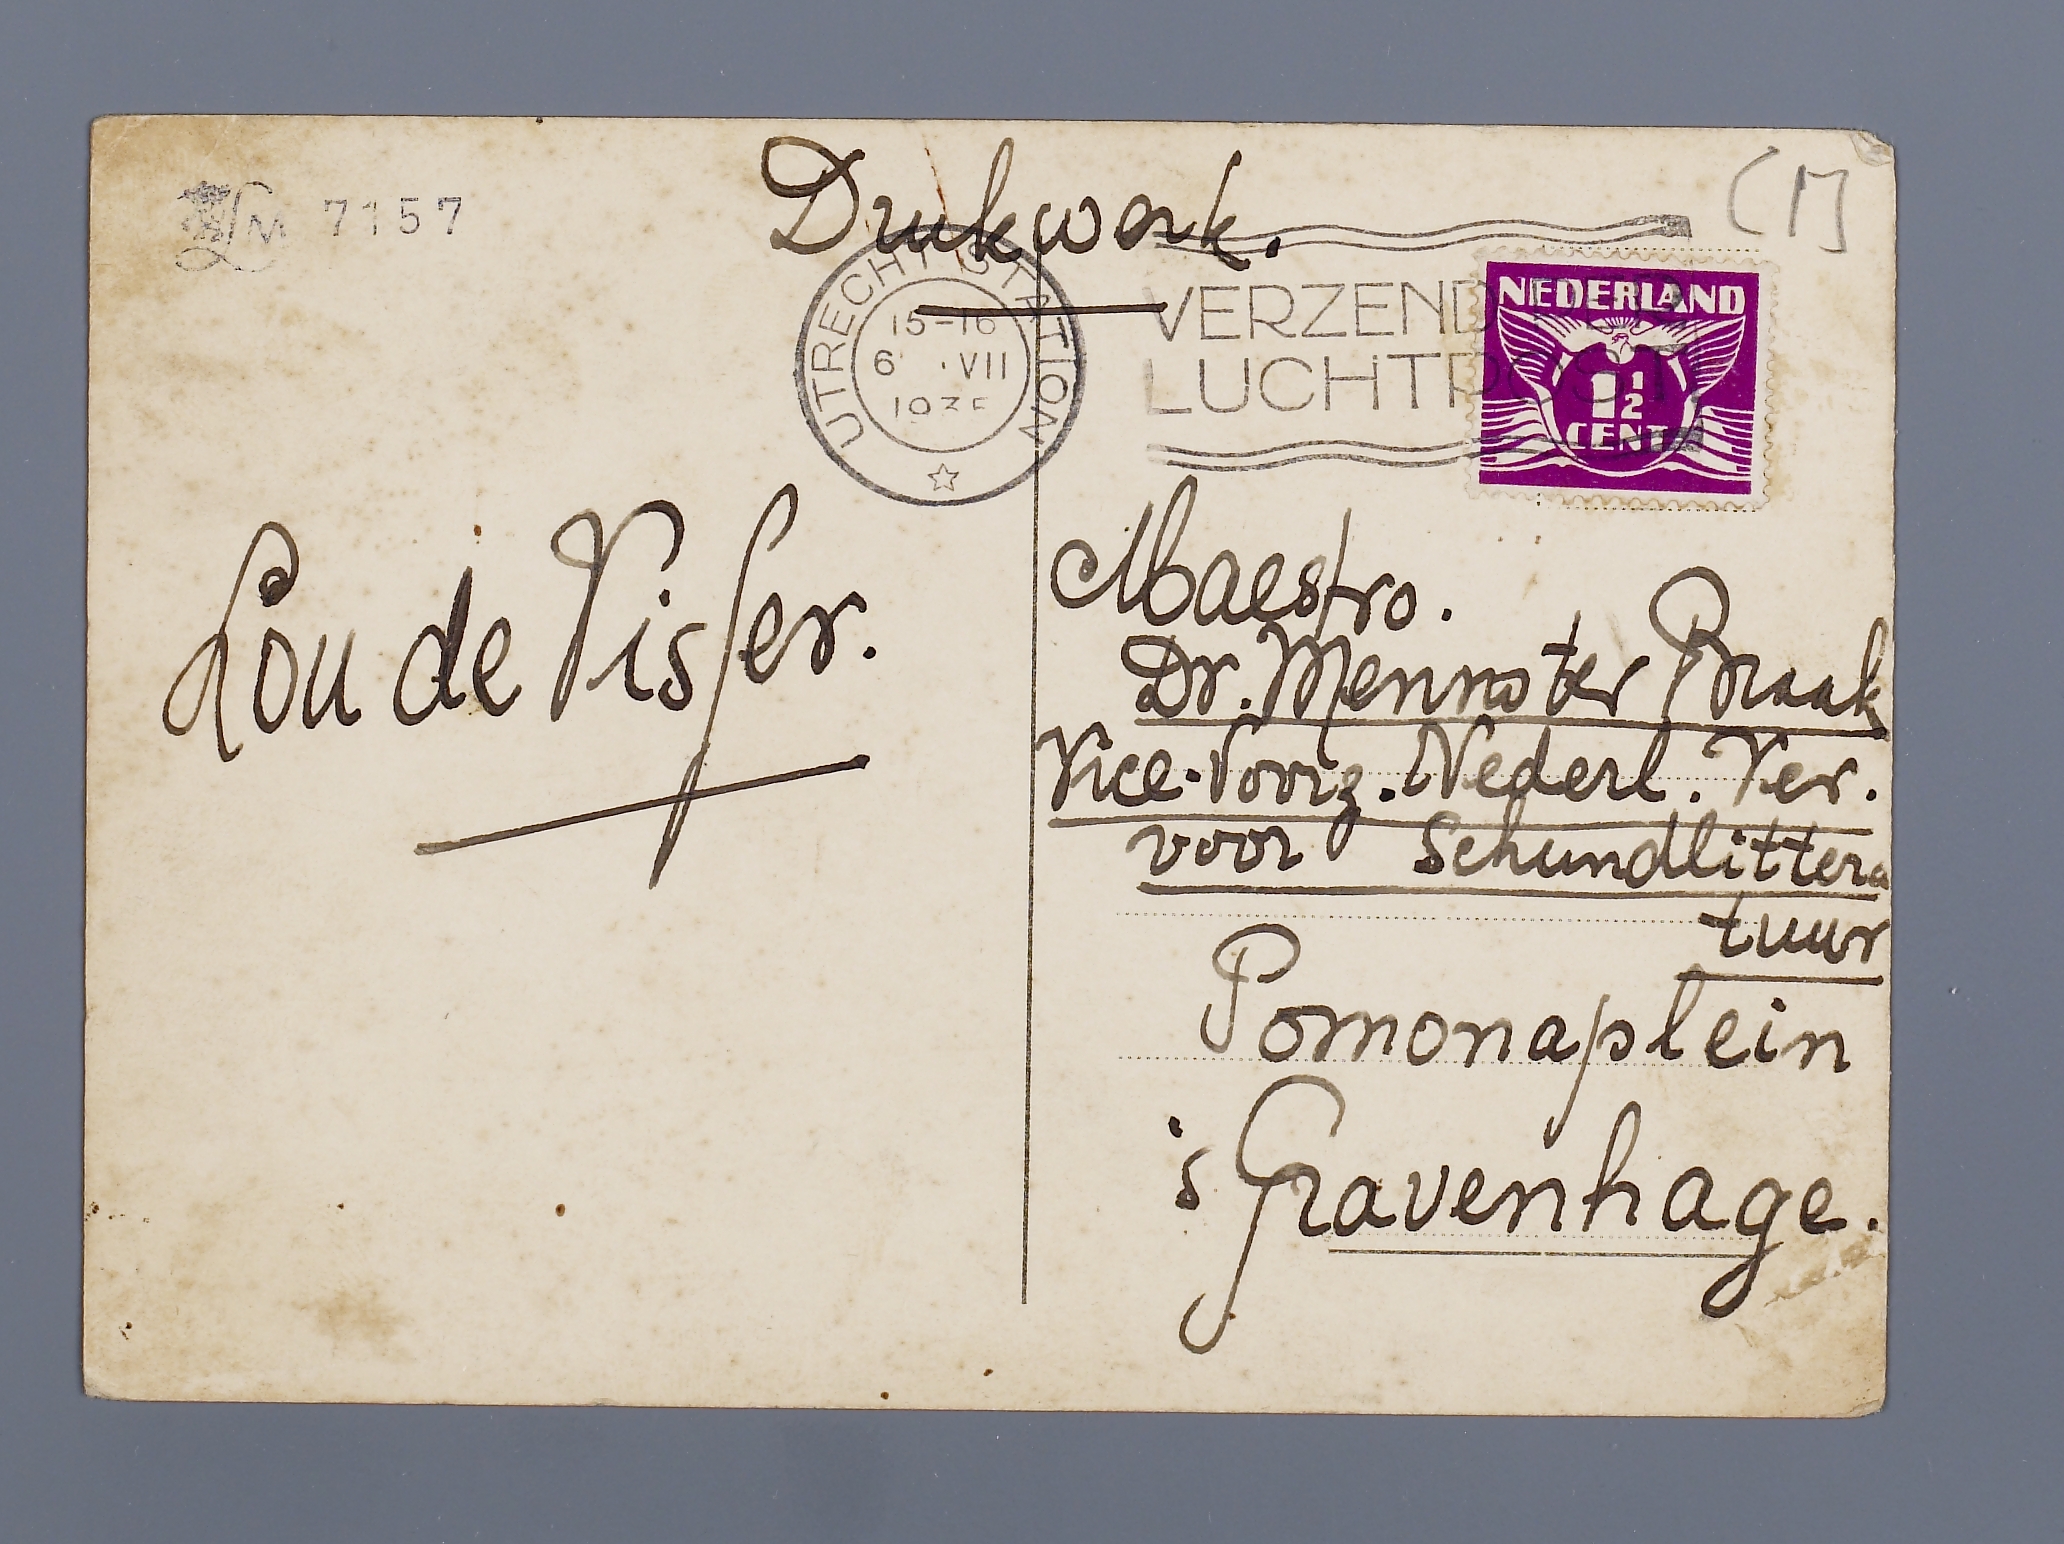 7157
Drukwerk.
[M]
UTRECHT STATION
15-16
6 VII
VERZEND PER
LUCHTPOST
NEDERLAND
1½
CENT
Lou de Visser.
Maestro.
Dr. Menno ter Braak
Vice-Voorz. Nederl. Ver.
voor Schundlittera
tuur
Pomonaplein
's Gravenhage.